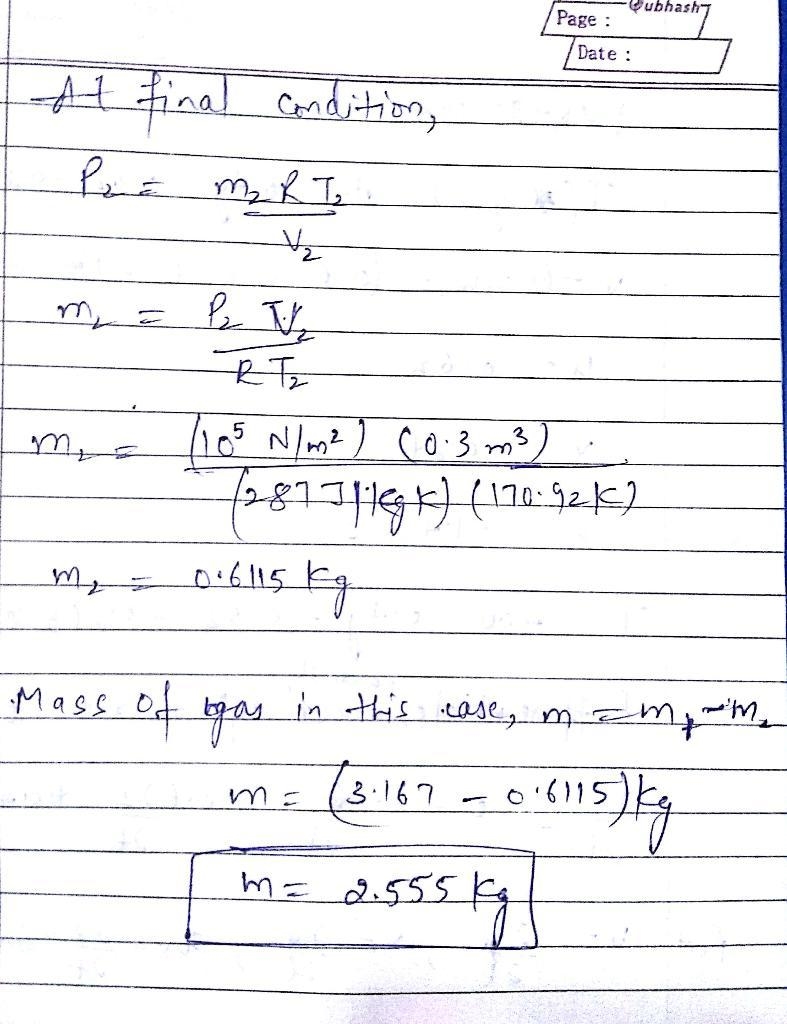 Subhash
Page :
Date :
At final condition,
P₂ = m₂ R T₂
V₂
m₂ = P₂ V₂
R T₂
m₂ = (10⁵ N/m²) (0.3 m³)
(287 J/kg K) (170.92 K)
m₂ = 0.6115 kg
Mass of gas in this case, m = m₁ - m₂
m = (3.167 - 0.6115) kg
m = 2.555 kg